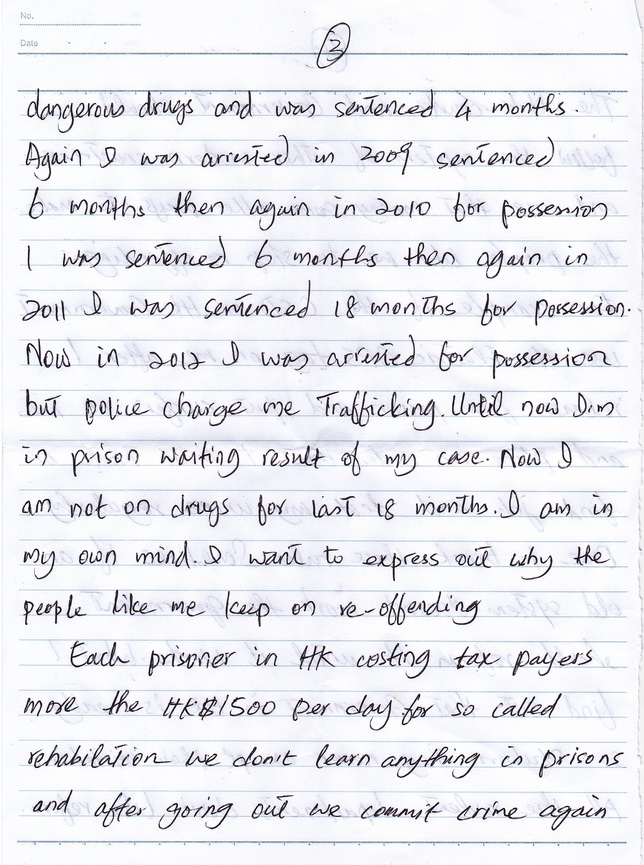 No.
Date
3
dangerous drugs and was sentenced 4 months.
Again I was arrested in 2009 sentenced
6 months then again in 2010 for possession
I was sentenced 6 months then again in
2011 I was sentenced 18 months for possession.
Now in 2012 I was arrested for possession
but police charge me Trafficking. Until now I.m
in prison waiting result of my case. Now I
am not on drugs for last 18 months. I am in
my own mind. I want to express out why the
people like me keep on re-offending
Each prisoner in HK costing tax payers
more the HK$1500 per day for so called
rehabilation we don't learn anything in prisons
and after going out we commit crime again